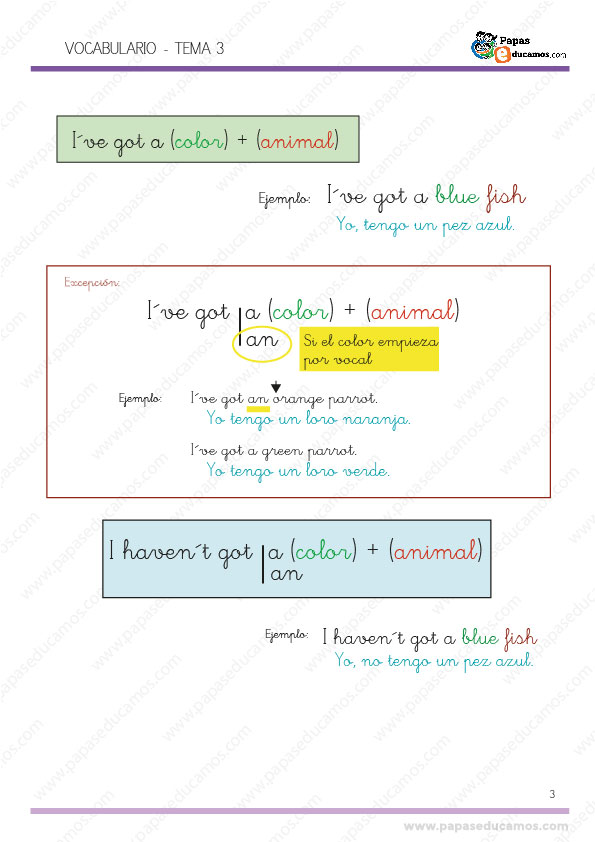 VOCABULARIO - TEMA 3
Papas
educamos.com
I´ve got a (color) + (animal)
Ejemplo: I´ve got a blue fish
Yo, tengo un pez azul.
Excepción:
I´ve got a (color) + (animal)
an
Si el color empieza
por vocal
Ejemplo: I´ve got an orange parrot.
Yo tengo un loro naranja.
I´ve got a green parrot.
Yo tengo un loro verde.
I haven´t got a (color) + (animal)
an
Ejemplo: I haven´t got a blue fish
Yo, no tengo un pez azul.
3
www.papaseducamos.com